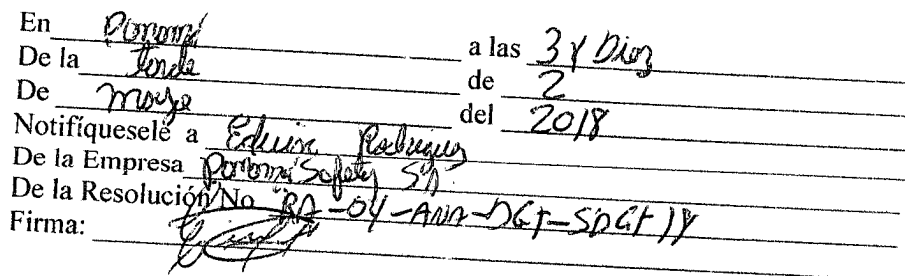 En Panamá a las 3 y Diez
De la tarde de 2
De mayo del 2018
Notifíquesele a Edwin Rodriguez
De la Empresa Panamá Safety SA
De la Resolución No RA-04-ANA-DGT-SDGT 18
Firma: